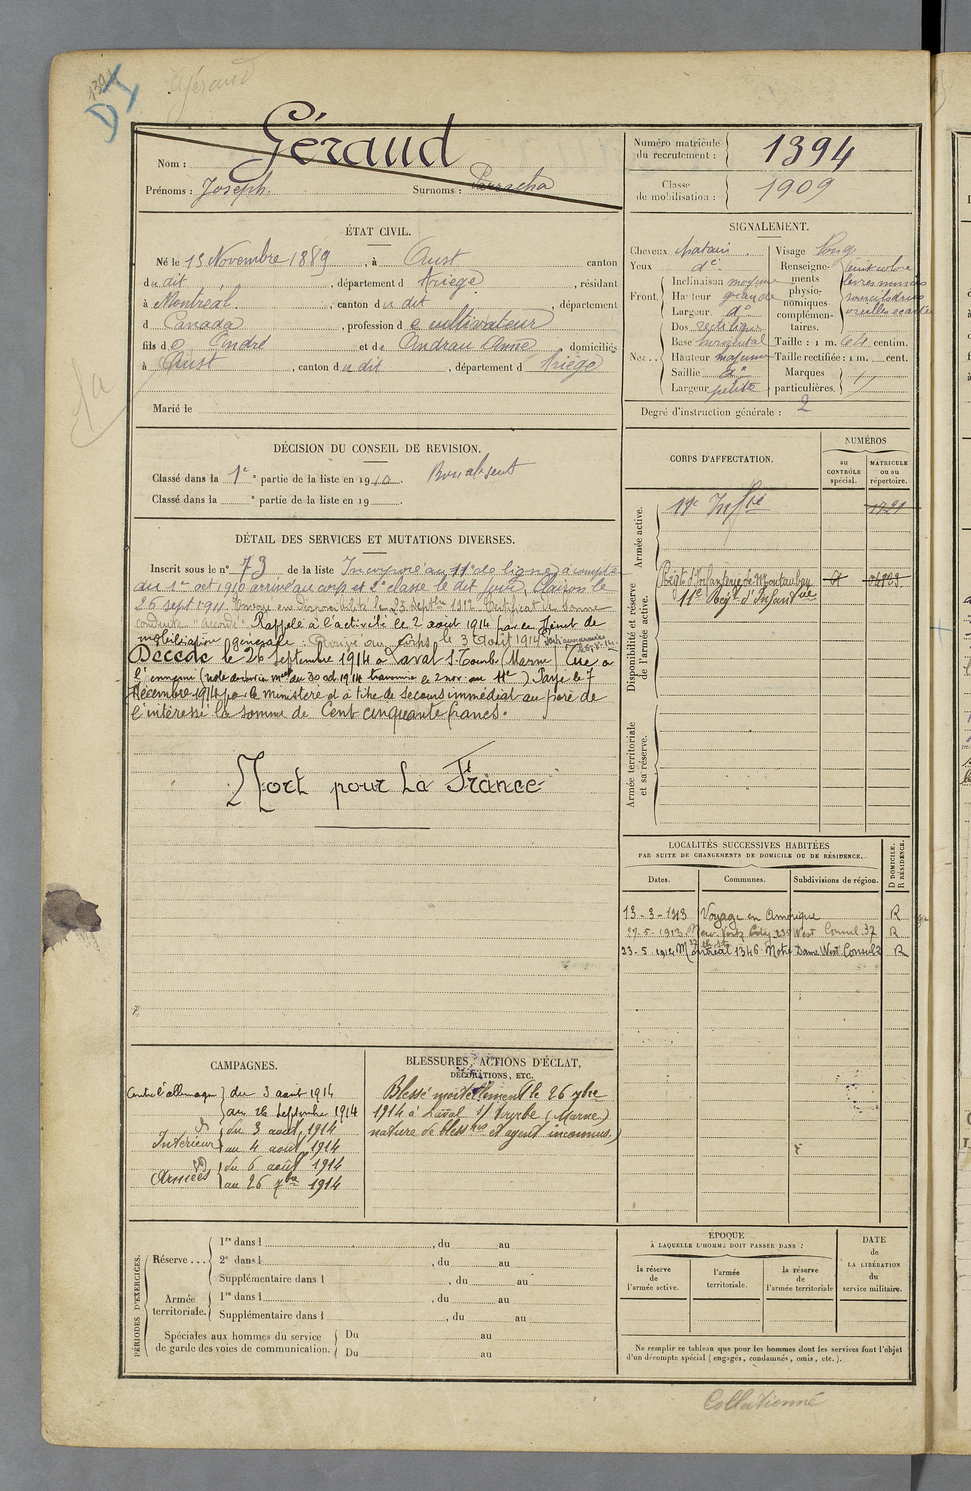 Géraud
Nom : Géraud
Prénoms : Joseph. Surnoms : Parracha
Numéro matricule du recrutement : 1394
Classe de mobilisation : 1909
ÉTAT CIVIL.
Né le 15 Novembre 1889, à Aust canton
dudit, département d Ariège, résidant
à Montréal, canton dudit, département
d Canada, profession de cultivateur
fils de André et de Andrau Anne domiciliés
à Aust, canton dudit, département d Ariège
Marié le
SIGNALEMENT.
Cheveux chatain
Yeux d°
Front. Inclinaison moyenne
Hauteur grande
Largeur d°
Nez.. Dos rectiligne
Base horizontal
Hauteur moyenne
Saillie d°
Largeur petite
Visage long
Renseignements physionomiques complémentaires.
Taille : 1 m. 64 centim.
Taille rectifiée : 1 m. cent.
Marques particulières.
Degré d'instruction générale : 2
DÉCISION DU CONSEIL DE REVISION.
Classé dans la 1e partie de la liste en 1910. Bon absent
Classé dans la e partie de la liste en 19
DÉTAIL DES SERVICES ET MUTATIONS DIVERSES.
Inscrit sous le n° 73 de la liste Incorporé au 11e de ligne à compter
du 1er oct 1910 arrivé au corps et 2e classe le dit jour. Clairon le
26 sept 1911. Envoyé en disponibilité le 23 Septbre 1912. Certificat de bonne
conduite "Accordé" Rappelé à l'activité le 2 août 1914 par
mobilisation générale. Arrivé au corps le 3 Août 1914
Décédé le 26 Septembre 1914 à Laval S. Tourbe (Marne) Tué à
l'ennemi (note de service mlle du 30 oct 1914 transmise le 2 nov. au 11e) Payé le 7
décembre 1914 par le ministère et à titre de secours immédiat au père de
l'intéressé la somme de Cent cinquante francs.
Mort pour la France
CORPS D'AFFECTATION.
NUMÉROS
au CONTRÔLE spécial.
MATRICULE ou au répertoire.
Armée active.
11e Infrie 1921
Disponibilité et réserve de l'armée active.
Régt d'Infanterie de Montauban
11e Régt d'Infanterie
Armée territoriale et sa réserve.
LOCALITÉS SUCCESSIVES HABITÉES
PAR SUITE DE CHANGEMENTS DE DOMICILE OU DE RÉSIDENCE.
Dates. Communes. Subdivisions de région. D DOMICILE. R RÉSIDENCE.
13-3-1913 Voyage en Amérique R
27-5-1913 New York City 235 West Consul 37 R
23-5-1914 Montréal 1346 Notre Dame West Consul R
CAMPAGNES.
Contre l'allemagne du 3 août 1914
au 26 Septembre 1914
Intérieur du 3 août 1914
au 4 août 1914
Armées du 6 août 1914
au 26 7bre 1914
BLESSURES, ACTIONS D'ÉCLAT,
DÉCORATIONS, ETC.
Blessé mortellement le 26 7bre
1914 à Laval s/ Tourbe (Marne)
nature de blesres et agent inconnus.
PÉRIODES D'EXERCICES.
Réserve... 1re dans l , du au
2e dans l , du au
Supplémentaire dans l , du au
Armée territoriale. 1re dans l , du au
Supplémentaire dans l , du au
Spéciales aux hommes du service de garde des voies de communication. Du au
Du au
ÉPOQUE
À LAQUELLE L'HOMME DOIT PASSER DANS :
la réserve de l'armée active.
l'armée territoriale.
la réserve de l'armée territoriale
DATE
de
LA LIBÉRATION
du
service militaire.
Ne remplir ce tableau que pour les hommes dont les services font l'objet
d'un décompte spécial (engagés, condamnés, omis, etc.).
Collationné